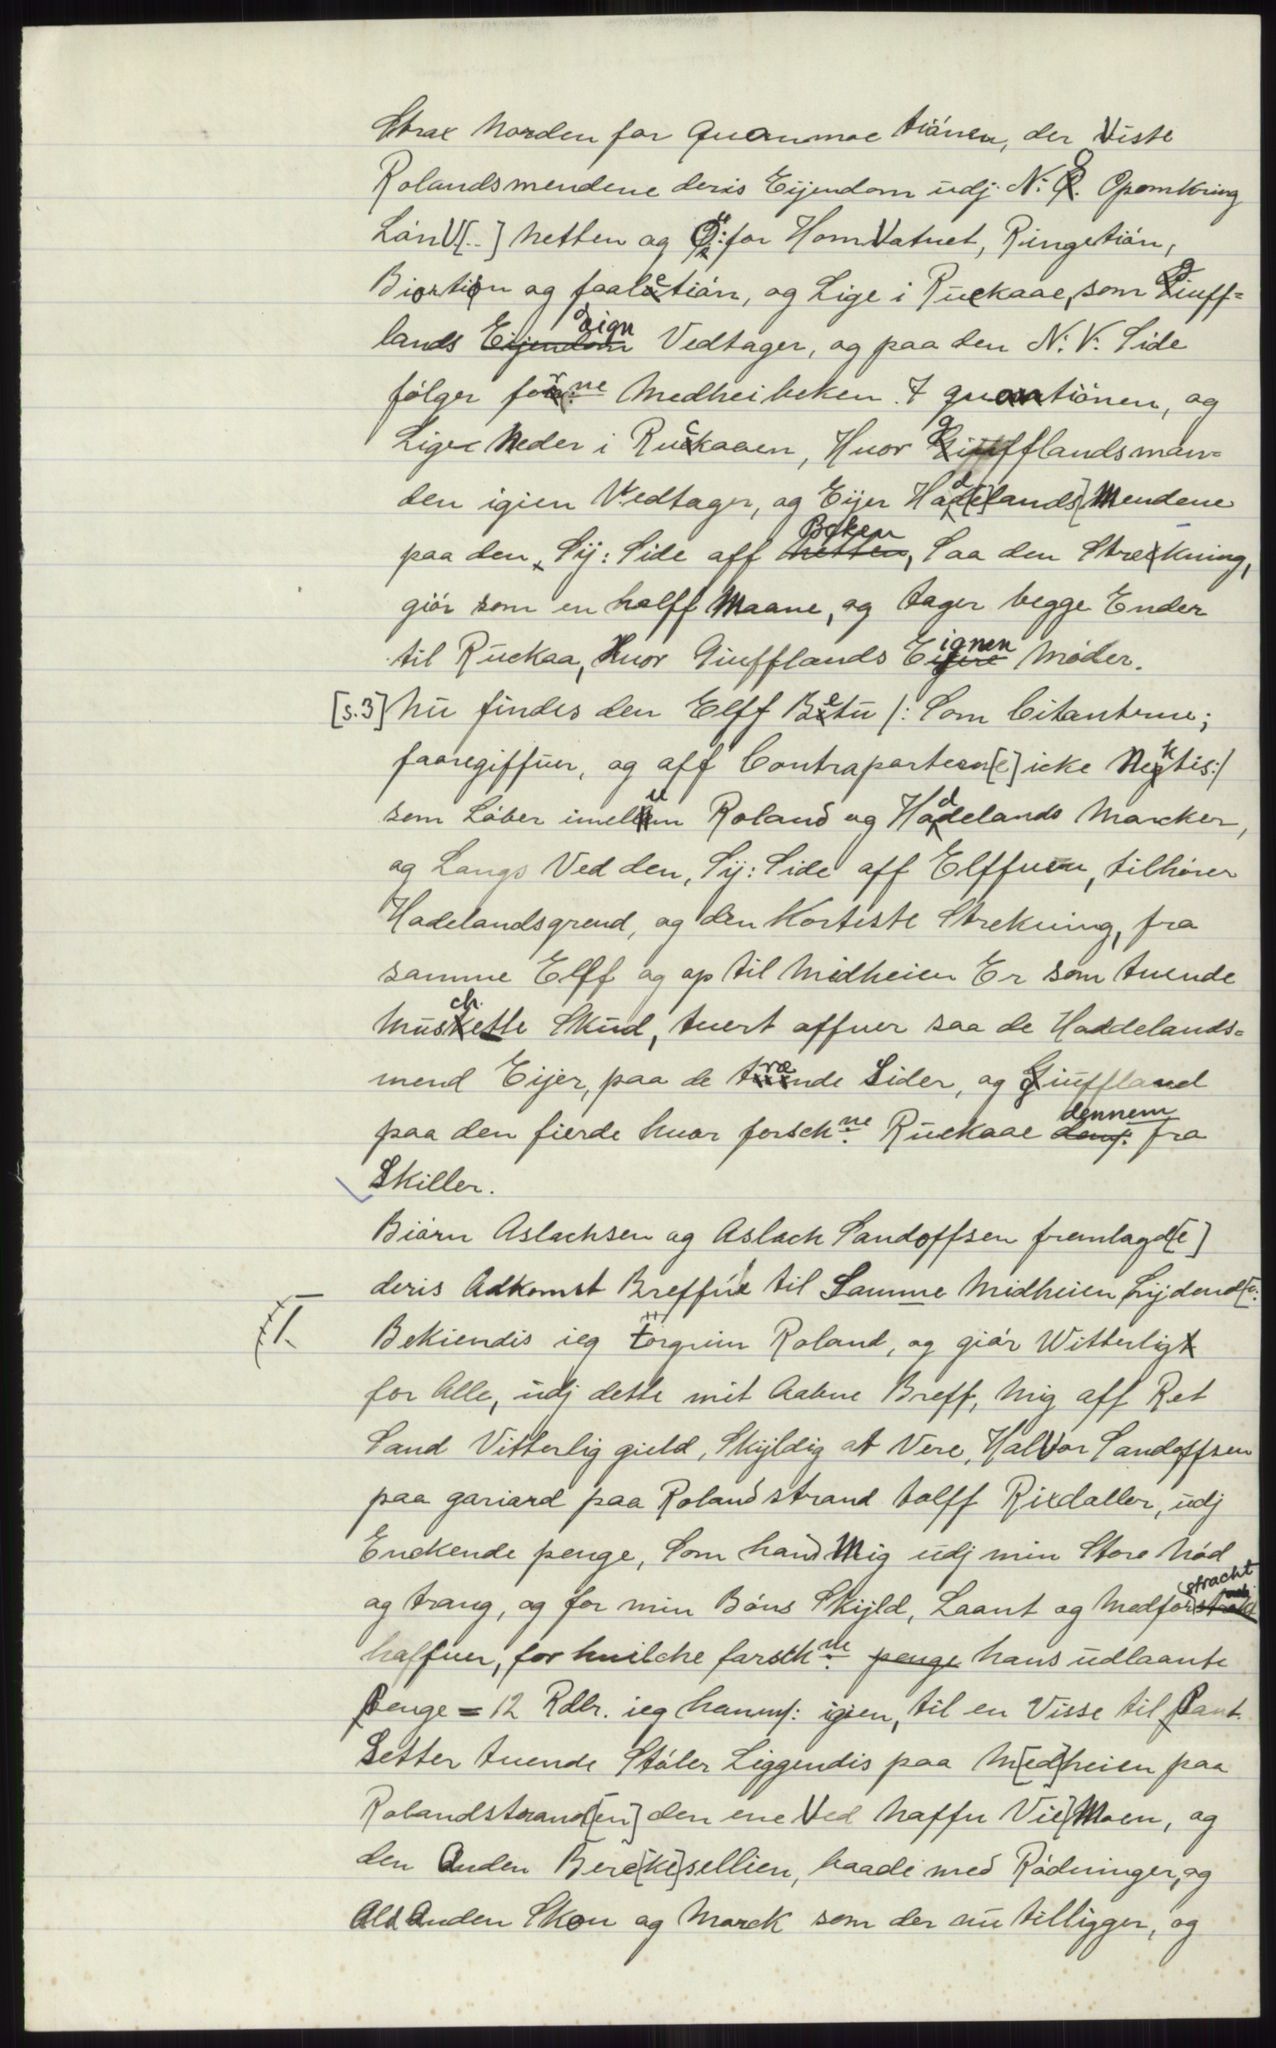 Strax Norden for Quanmoe tiánen, der Viste
Rolandsmendene deris Eijendom udj N: O. Opomkring
Lán V[..] hetten og Ø: for Hom Vatnet, Ringetián,
Biortion og faaletián, og Lige i Ruckaae, som Giuff=
lands Eign Vedtager, og paa den N: V: Side
fólger for:ne Medheibeken. I quantiónen, og
Liger Neder i Ruckaaen, Huor Giufflandsman=
den igien Vedtager, og Eijer Had[e]lands Mendene
paa den Sÿ: Side aff Beken, Saa den Strekning,
giór som en halff Maane, og tager begge Ender
til Ruckaa, Huor Giufflands Eignen Móder.
[s.3] Nu findes den Elff Betu /: Som Citanterne;
faaregiffuer, og aff Contraparterne[e] icke Nektis:/
som Lóber imellem Roland og Hadelands Marcker,
og Langs Ved den, Sÿ: Side aff Elffuen, tilhórer
Hadelandsgrend, og den Kortiste Strekning, fra
samme Elff og op til Midheien Er som tuende
Muschette Skud, tuert offuer saa de Haddelands=
mend Eijer, paa de trænde Sider, og Giuffland
paa den fierde huor forsch:ne Ruckaae dennem fra
Skiller.
Biórn Aslachsen og Aslach Sandoffsen fremlagd[e]
deris Adkomst Breffue til Samme Midheien Lijdend[e:
I. Bekiendis ieg Törgrim Roland, og giór Witterligt
for Alle, udj dette mit Aabne Breff, Mig aff Ret
Sand Vitterlig gield, Skijldig at Vere, Halvor Sandoffsen
paa gariard paa Rolandstrand tolff Rixdaller, udj
Enckende penge, Som hand Mig udj min Store Nód
og trang, og for min Bóns Skijld, Laant og Medforstracht
haffuer, for huilche forsch:ne penge hans udlaante
Penge = 12 Rdlr. ieg hannf: igien, til en Visse til Pant
Setter tuende Stóler Liggendis paa M[ed]heien paa
Rolandstrand[en] den ene Ved haffn Vie[Moen, og
den Anden Berc[ke]sellien, baade med Ródninger, og
Ald Anden Skou og Marck som der nu tilligger, og